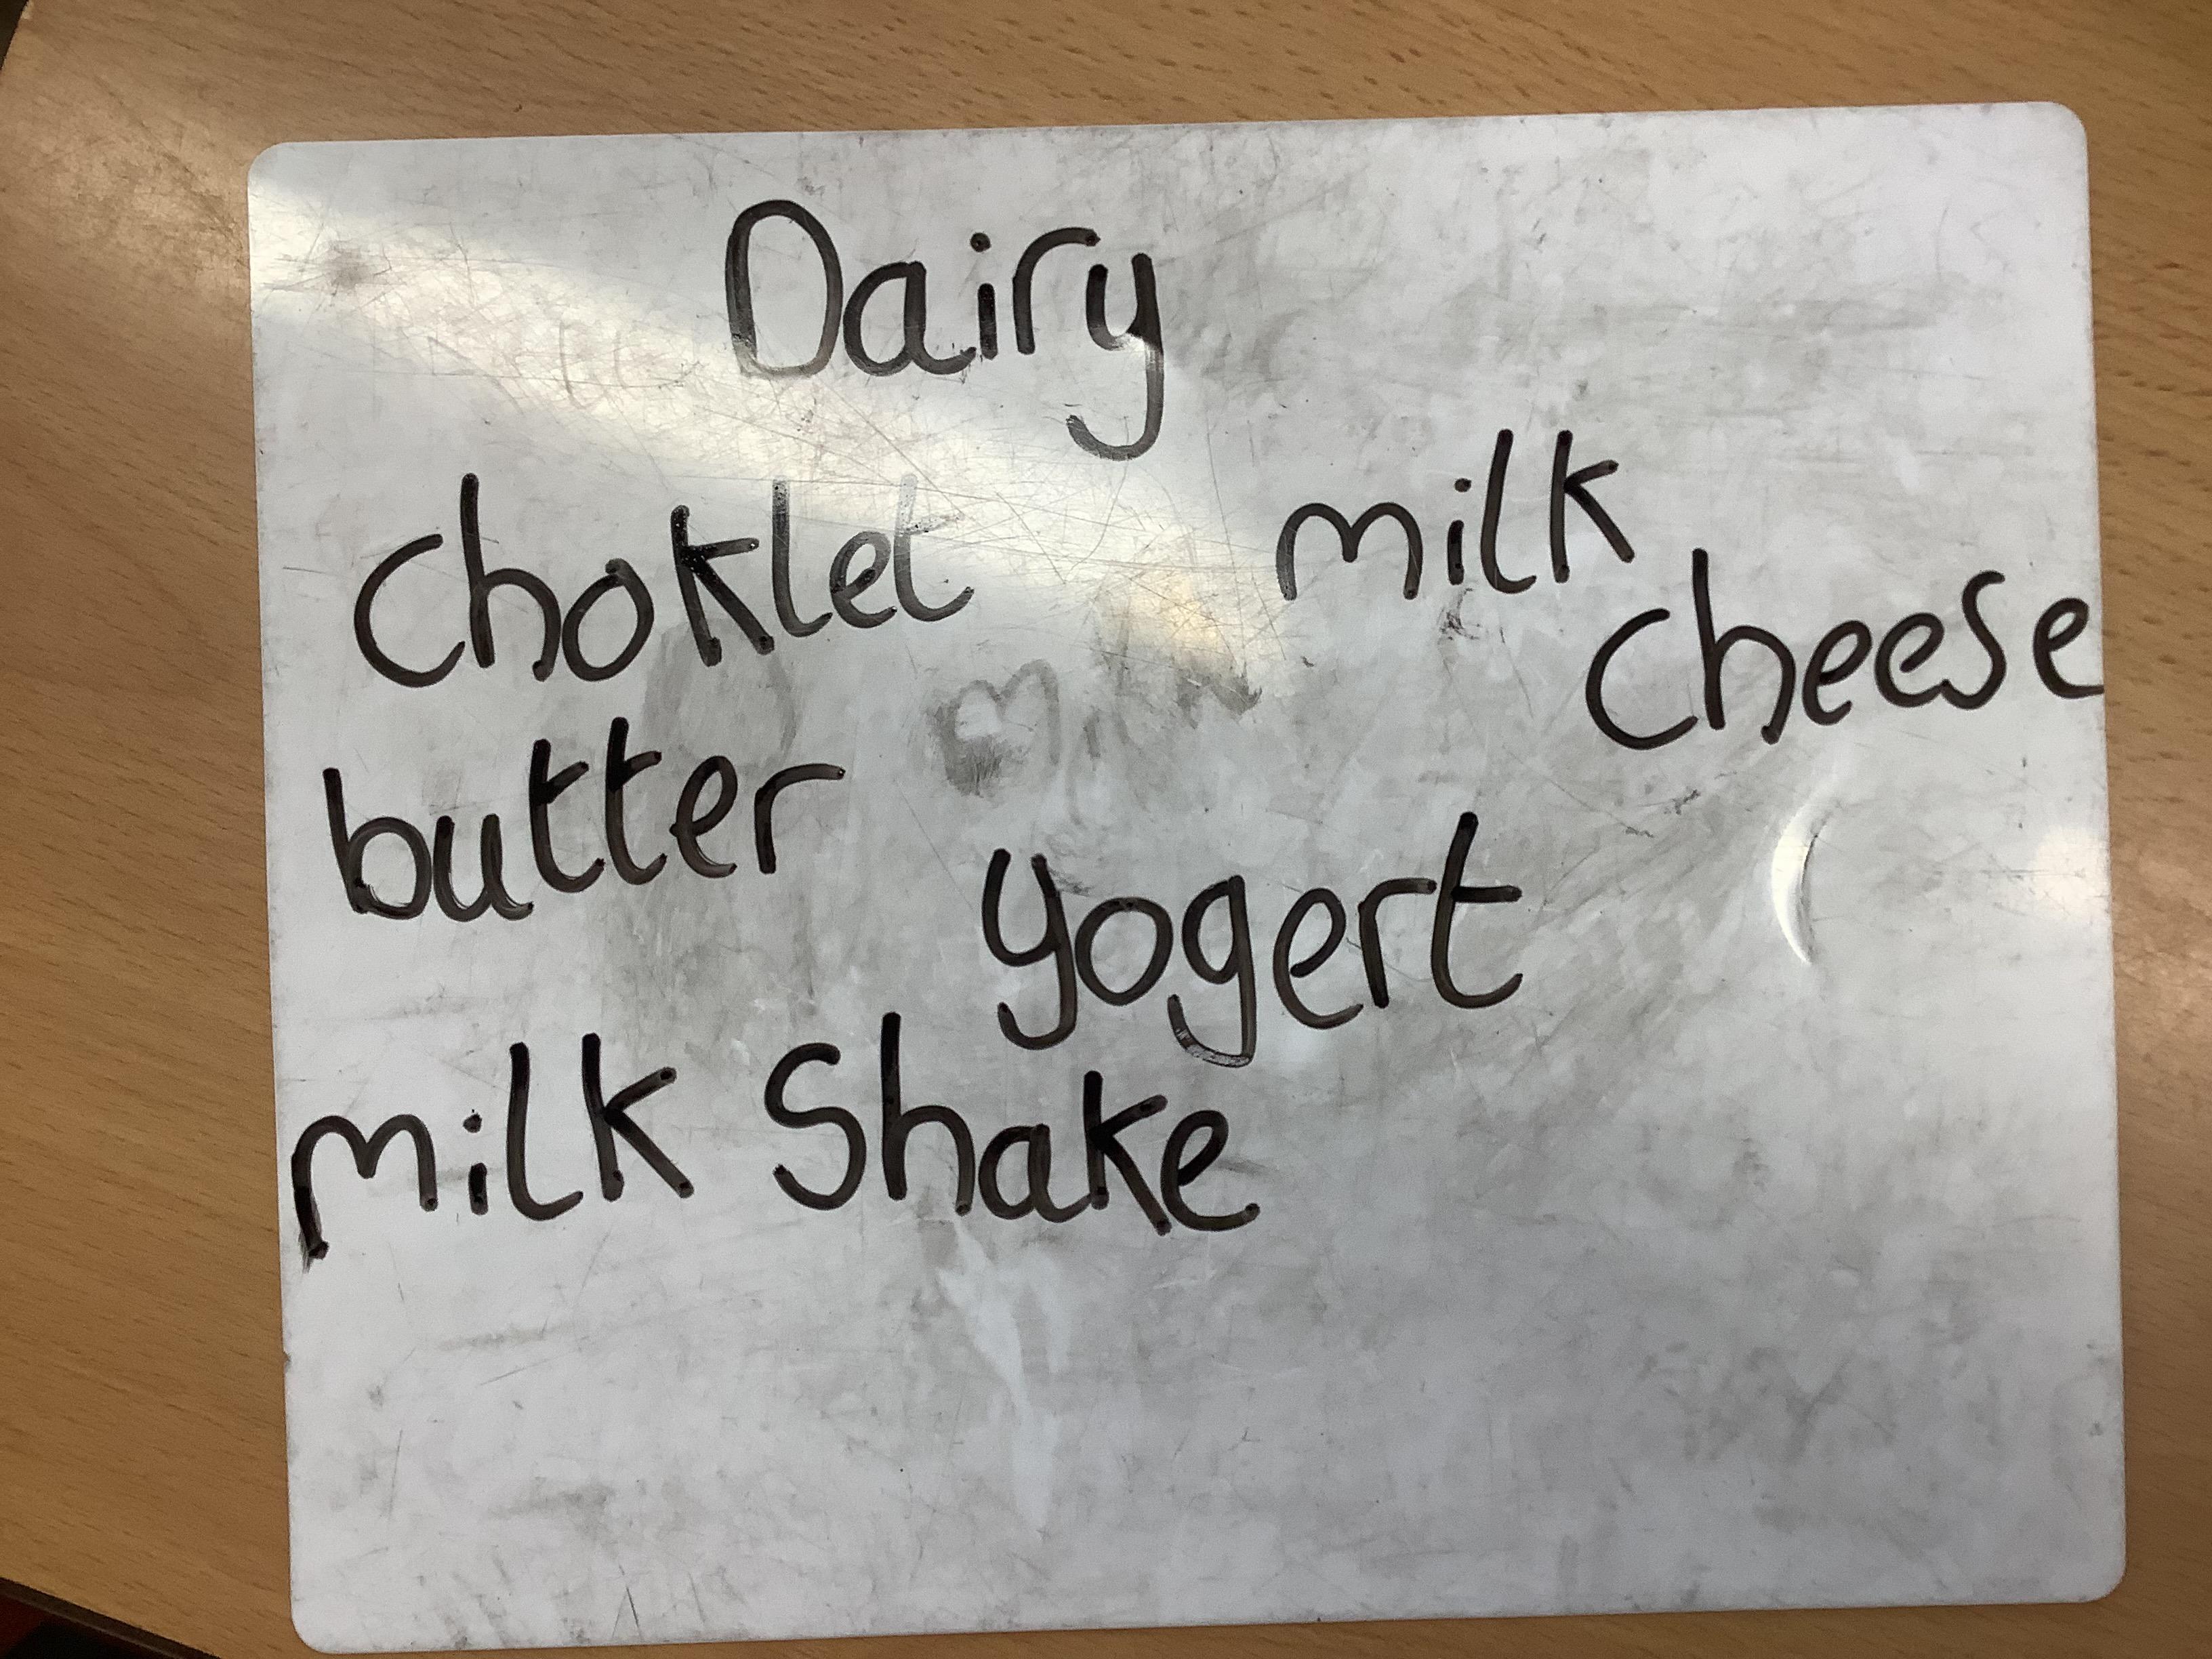 Dairy
choklet milk
cheese
butter
yogert
milk Shake